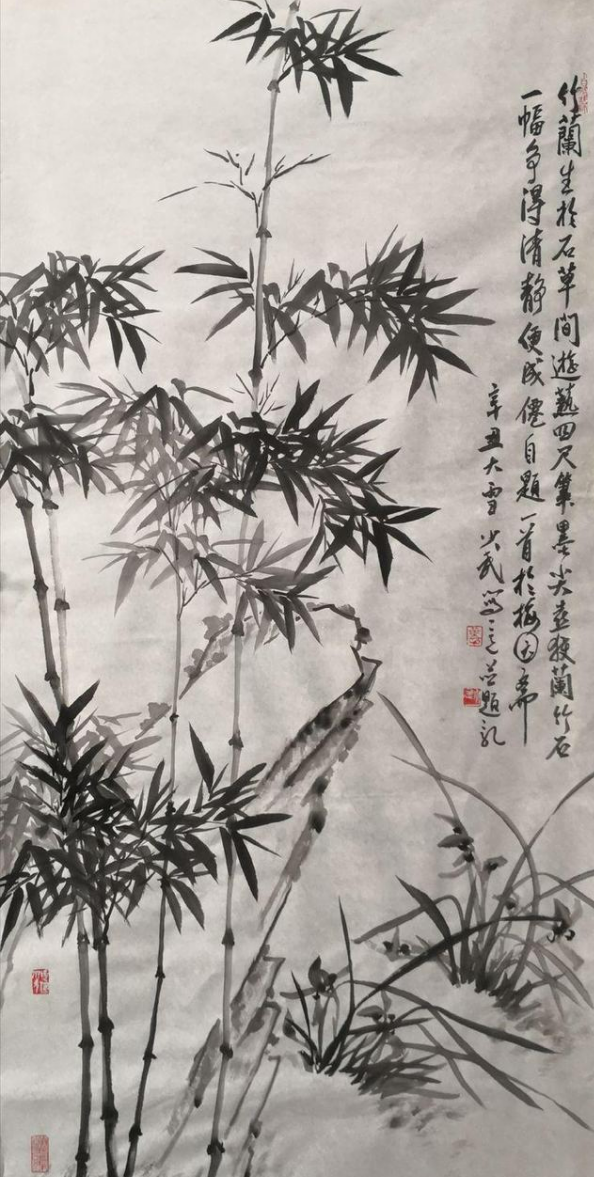 竹蘭生於石草間遊藝四尺筆墨尖蘭竹石
一幅争得清靜便成僊自題一首於梅园斋
辛丑大雪少武寫意並題記